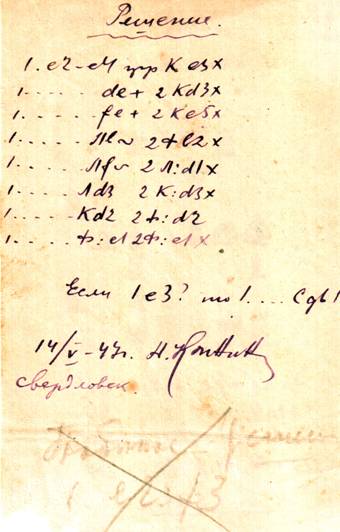 Решение.
1. e2-e4 угр K e3x
1. . . . . de+ 2 Kd3x
1. . . . . fe+ 2 Ke5x
1. . . . . Лe~ 2 Фe2x
1. . . . . Лf~ 2 Л:d1x
1. . . . . Лd3 2 K:d3x
1. . . . . Kd2 2 Ф:d2
1. . . . . Ф:e1 2Ф:e1x
Если 1 e3? то 1. . . . Cg1
14/V-47г. Н.
Свердловск.